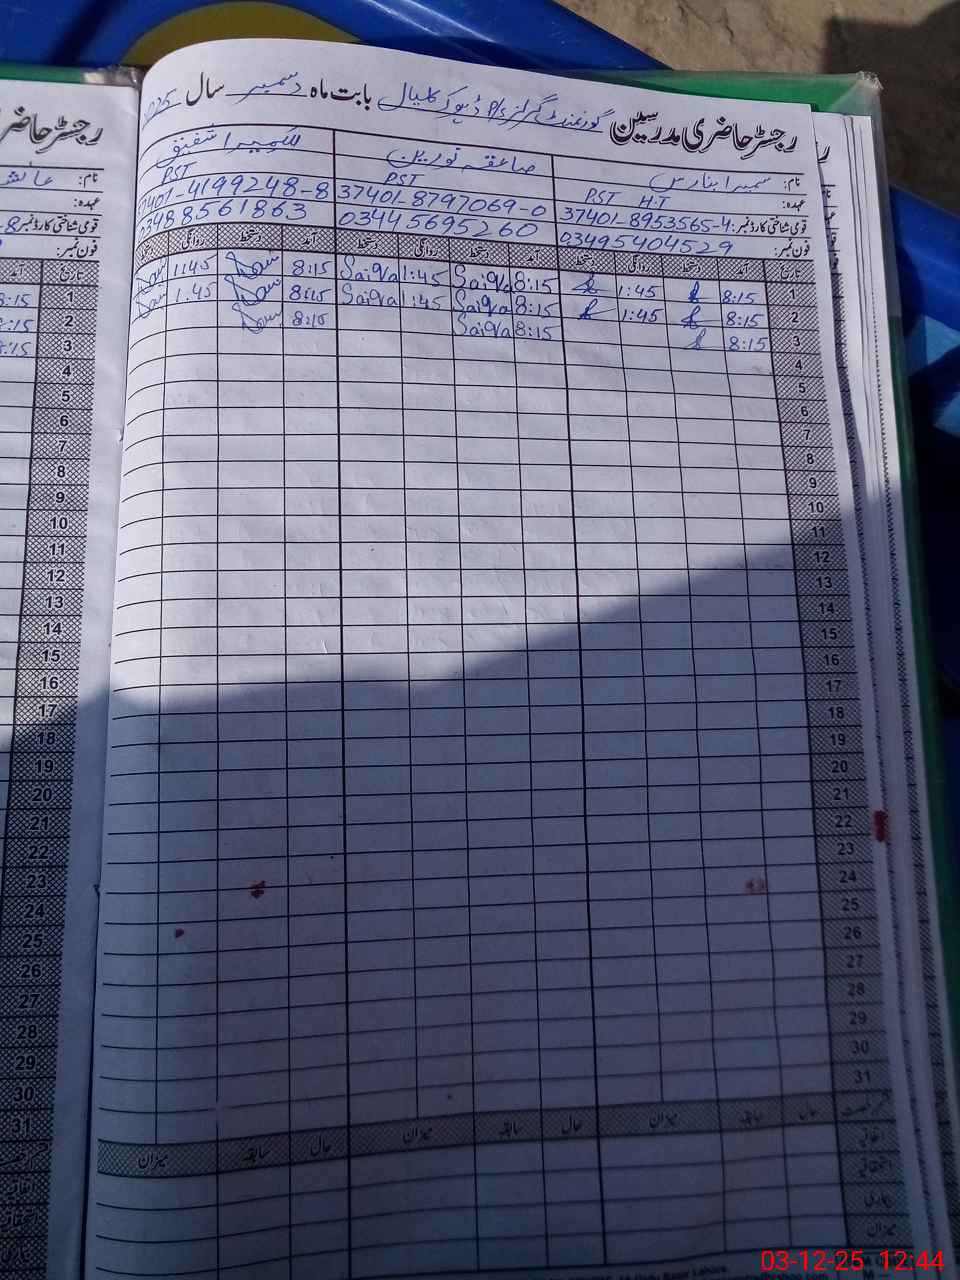 رجسٹر حاضری مدرسین گورنمنٹ گرلز P/S ڈہوک کلیال بابت ماہ دسمبر سال 2025
نام: سمیرا بنارس صاعقہ نورین
عہدہ: PST H.T PST PST
قومی شناختی کارڈ نمبر: 37401-8953565-4 37401-8797069-0 37401-4199248-8
فون نمبر: 03495404529 03445695260 03488561863
تاریخ آمد دستخط روانگی دستخط آمد دستخط روانگی دستخط آمد دستخط روانگی دستخط
1 8:15 1:45 8:15 Saiqa 1:45 Saiqa 8:15 1:45
2 8:15 1:45 8:15 Saiqa 1:45 Saiqa 8:15 1:45
3 8:15 8:15 Saiqa 8:15
4
5
6
7
8
9
10
11
12
13
14
15
16
17
18
19
20
21
22
23
24
25
26
27
28
29
30
31
حال سابقہ میزان حال سابقہ میزان حال سابقہ میزان
اتفاقیہ
استحقاقیہ
بیماری
میزان
رجسٹر حاضر
نام:
عہدہ:
قومی شناختی کارڈ نمبر:
فون نمبر:
تاریخ
1 8:15
2 8:15
3 8:15
4
5
6
7
8
9
10
11
12
13
14
15
16
17
18
19
20
21
22
23
24
25
26
27
28
29
30
31
03-12-25 12:44